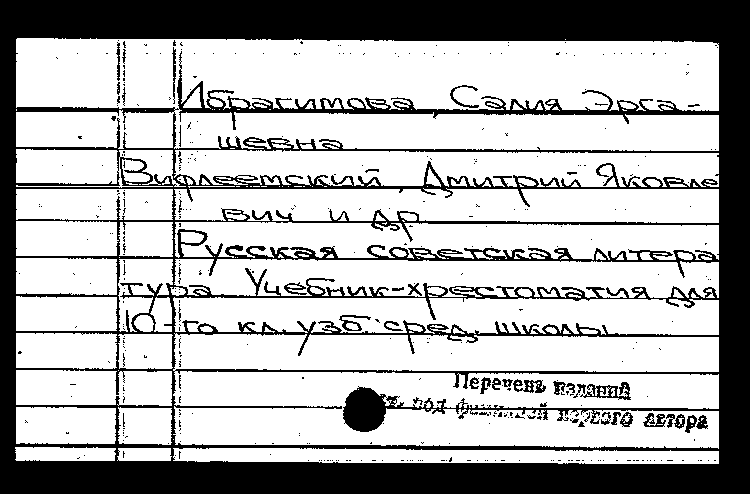 Ибрагимова, Салия Эрга-
шевна
Вифлеемский, Дмитрий Яковле
вич и др
Русская советская литера
тура Учебник-хрестоматия для
10-го кл. узб. сред. школы
Перечень изданий
под фамилией первого автора